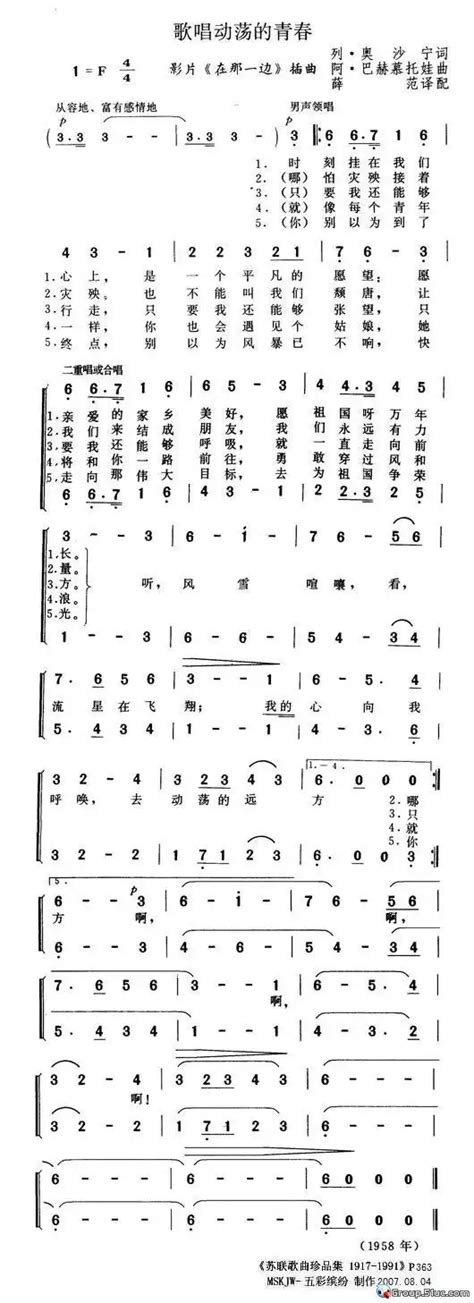 歌唱动荡的青春
列·奥沙宁词
1=F 4/4 影片《在那一边》插曲 阿·巴赫慕托娃曲
薛范译配
从容地、富有感情地 男声领唱
( 3.3 3 3.3 3 ) 3 6 6.7 1 6
1. 时刻挂在我们
2.(哪)怕灾殃接着
3.(只)要我还能够
4.(就)像每个青年
5.(你)别以为到了
4 3 - 1 2 2 2 3 2 1 7 6 - 3
1.心上,是一个平凡的愿望;愿
2.灾殃。也不能叫我们颓唐,让
3.行走,只要我还能够张望,只
4.一样,你也会遇见个姑娘,她
5.终点,别以为风暴已不响,快
二重唱或合唱
6 6.7 1 6 6 5 - 2 4 4.3 4 5
1.亲爱的家乡美好,愿祖国呀万年
2.我们来结成朋友,我们永远有力
3.要我还能够呼吸,就一直走向前
4.将和你一路前往,勇敢穿过风和
5.走向那伟大目标,去为祖国争荣
6 6.7 1 6 2 2 - 1 2 2.3 2 5
3 - - 3 6 - - i 7 6 - 5 6
1.长。
2.量。
3.方。 听,风雪喧嚷,看,
4.浪。
5.光。
1 - - 1 3 - - 6 5 4 - 3 4
7. 6 5 6 3 - - 1 6 - 5. 4
流星在飞翔;我的心向我
5. 4 3 4 1 - - 1 4 - 3. 6
3 2 - 4 3 2 3 4 3 6. 0 0 0
1.-4.
呼唤,去动荡的远方 2.哪
3.只
4.就
5.你
3 2 - 2 1 7 1 2 3 6. 0 0 0
5.
p
6 - - 3 6 - - 1 7 6 - 5 6
方啊,啊,
6 - - 3 6 - - 6 5 4 - 3 4
7. 6 5 6 3 - - 1 6 - 5. 4
啊,
5. 4 3 4 1 - - 1 4 - 3. 2
3 2 - 4 3 2 3 4 3 6 - - -
啊!
3 2 - 2 1 6 1 2 3 6 - - -
6 - - - 6 - - - 6 0 0 0
6 - - - 6 - - - 6 0 0 0
(1958 年)
《苏联歌曲珍品集 1917-1991》P363
MSKJW-五彩缤纷 制作2007.08.04
Group.51uc.com